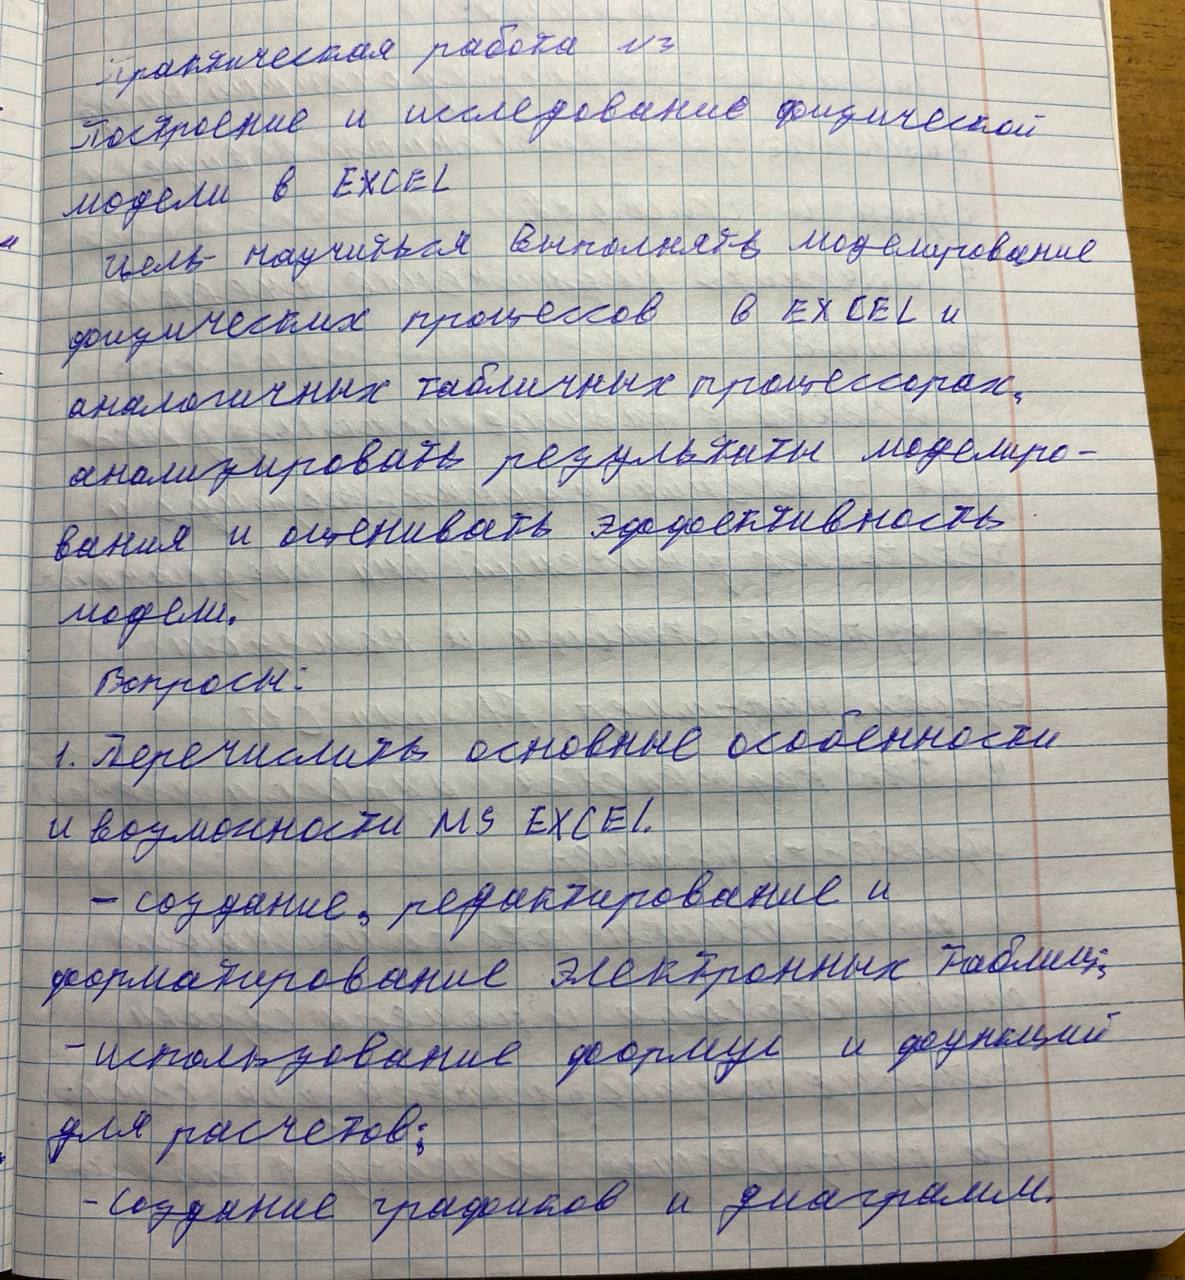 Практическая работа
Построение и исследование физической
модели в EXCEL
Цель- научиться выполнять моделирование
физических процессов в EXCEL и
аналогичных табличных процессорах,
анализировать результаты моделиро-
вания и оценивать эффективность
модели.
Вопросы:
1. Перечислить основные особенности
и возможности MS EXCEL.
- создание, редактирование и
форматирование электронных таблиц;
- использование формул и функций
для расчетов;
- создание графиков и диаграмм.